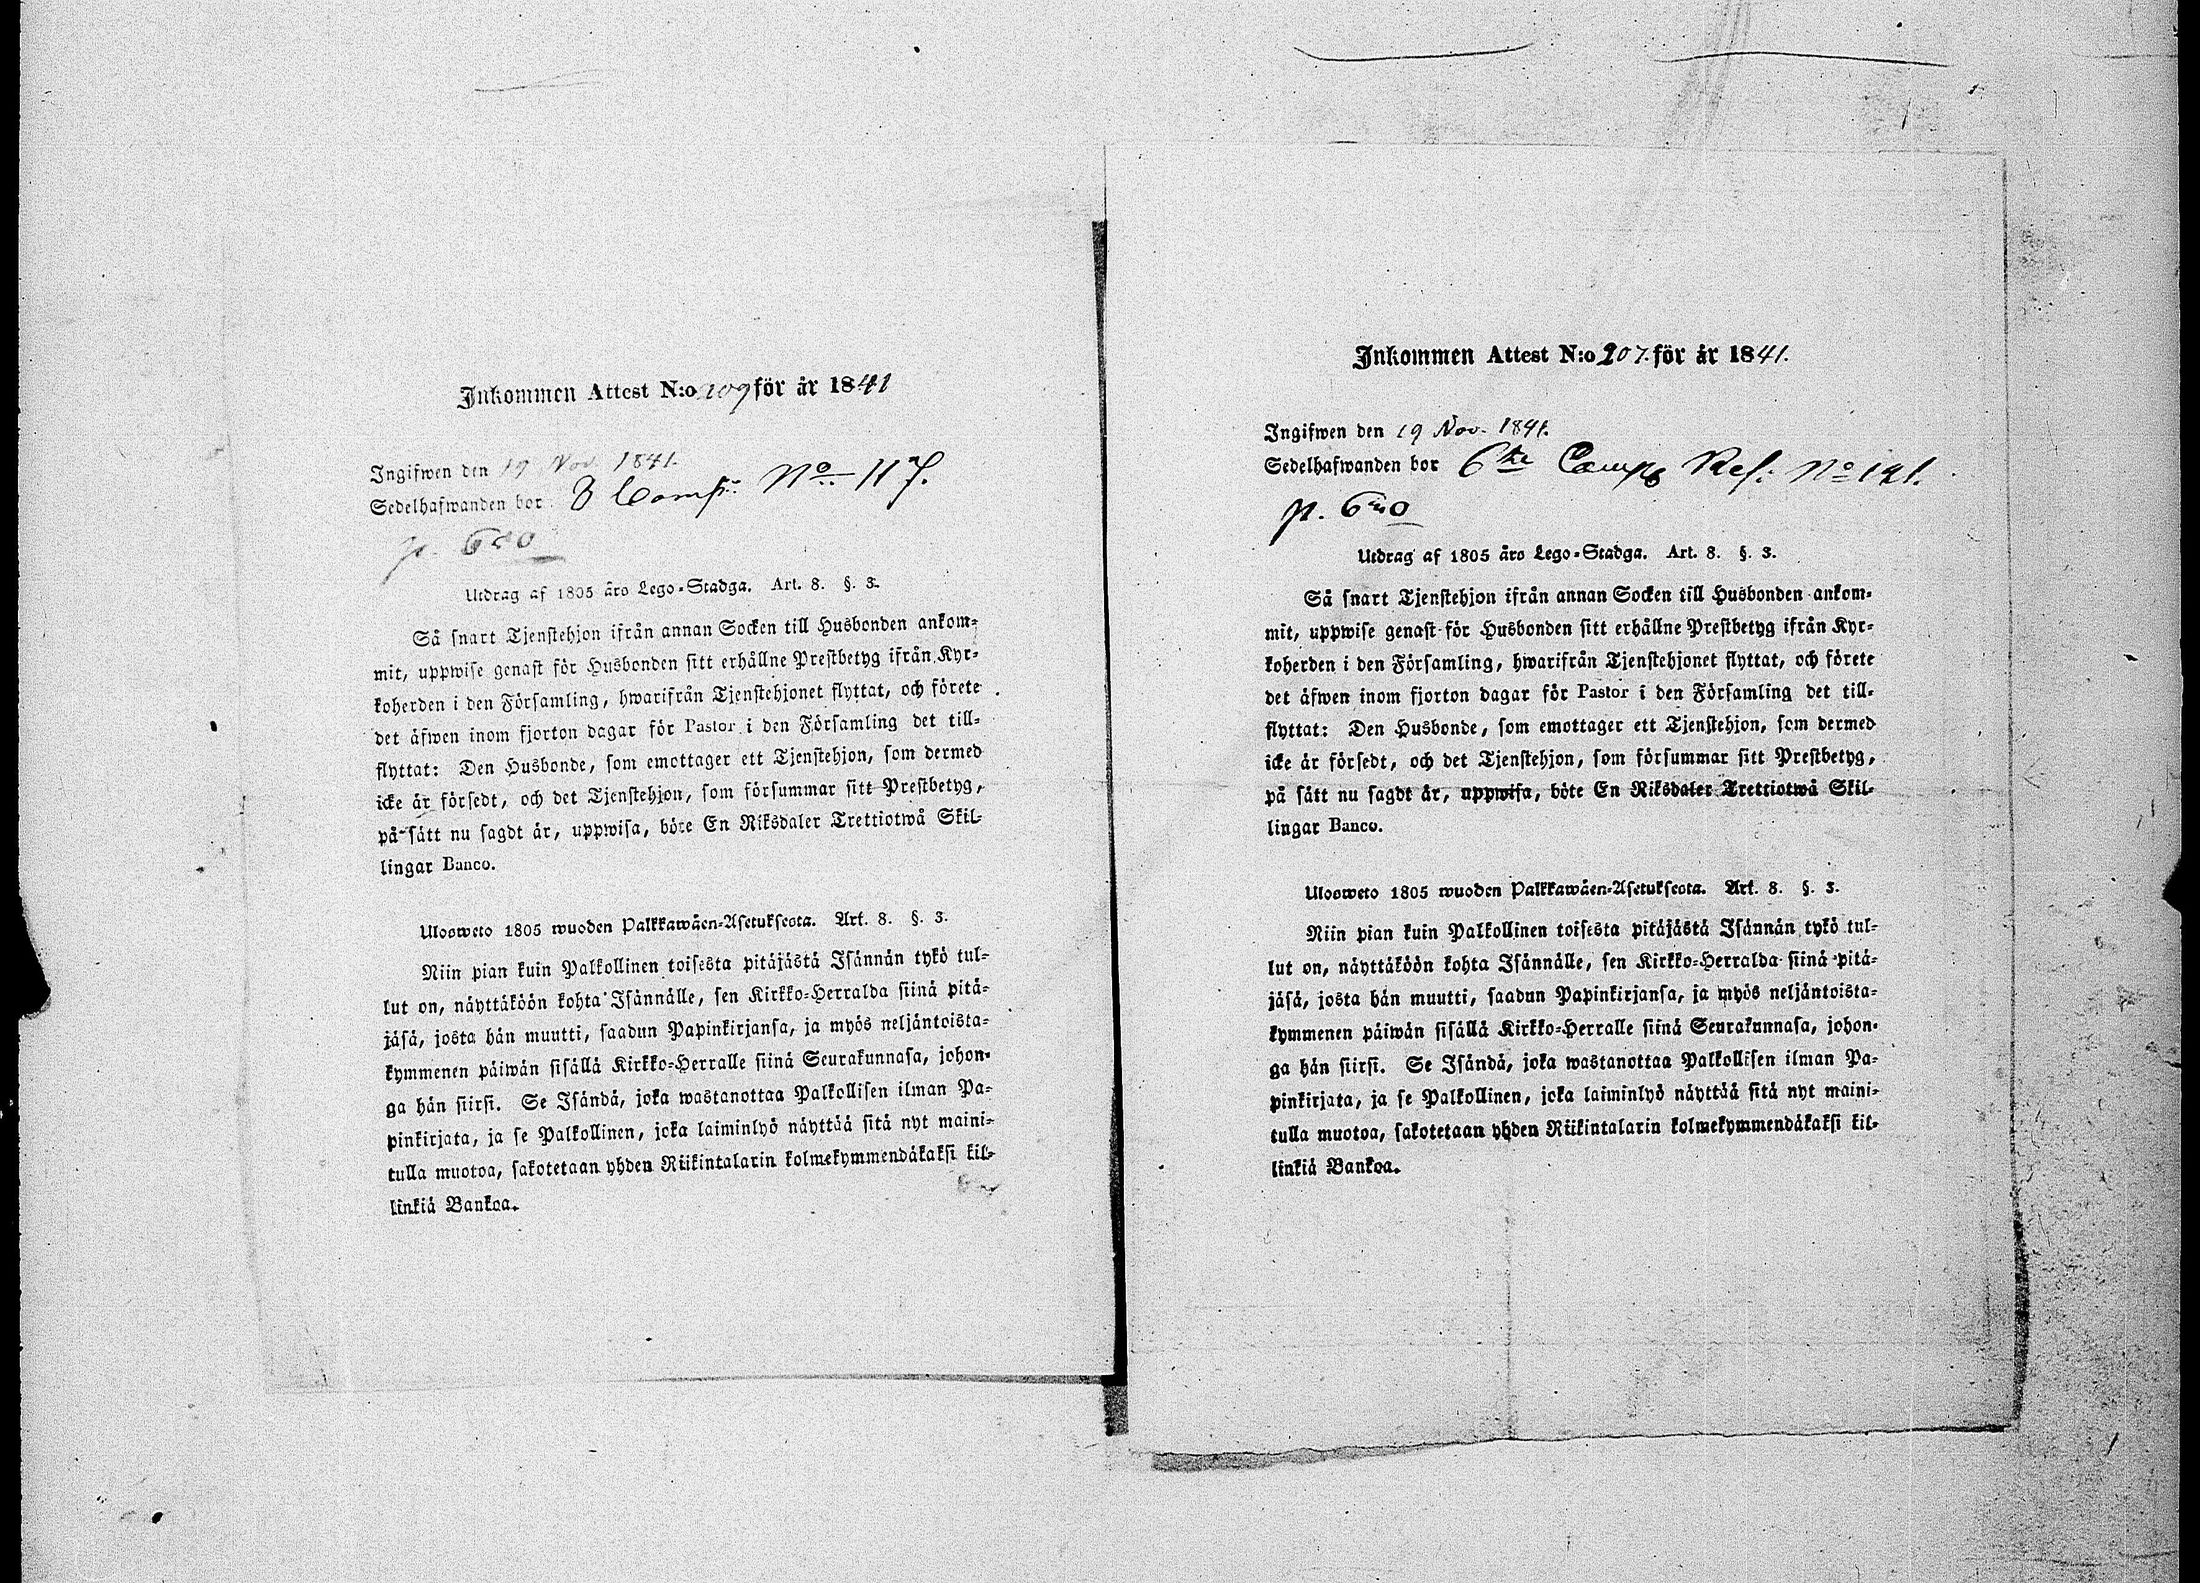 Inkommen Attest N:o 209 för år 1841
Ingifwen den 19 Nov 1841.
Sedelhafwanden bor 8 Comp: No. 117.
p. 620
Utdrag af 1805 års Lego-Stadga. Art. 8. §. 3.
Så snart Tjenstehjon ifrån annan Socken till Husbonden ankom-
mit, uppwise genast för Husbonden sitt erhållne Prestbetyg ifrån Kyr-
koherden i den Församling, hwarifrån Tjenstehjonet flyttat, och förete
det äfwen inom fjorton dagar för Pastor i den Församling det till-
flyttat: Den Husbonde, som emottager ett Tjenstehjon, som dermed
icke är försedt, och det Tjenstehjon, som försummar sitt Prestbetyg,
på sätt nu sagdt är, uppwisa, böte En Riksdaler Trettiotwå Skil-
lingar Banco.
Ulosweto 1805 wuoden Palkkawäen-Asetuksesta. Art. 8. §. 3.
Niin pian kuin Palkollinen toisesta pitäjästä Isännän tykö tul-
lut on, näyttäköön kohta Isännälle, sen Kirkko-Herralda siinä pitä-
jäsä, josta hän muutti, saadun Papinkirjansa, ja myös neljäntoista-
kymmenen päiwän sisällä Kirkko-Herralle siinä Seurakunnasa, johon-
ga hän siirsi. Se Isändä, joka wastanottaa Palkollisen ilman Pa-
pinkirjata, ja se Palkollinen, joka laiminlyö näyttää sitä nyt maini-
tulla muotoa, sakotetaan yhden Riikintalarin kolmekymmendäkaksi kil-
linkiä Bankoa.
Inkommen Attest N:o 207. för år 1841.
Ingifwen den 19 Nov. 1841.
Sedelhafwanden bor 6te Comp Ref. No 121.
p. 620
Utdrag af 1805 års Lego-Stadga. Art. 8. §. 3.
Så snart Tjenstehjon ifrån annan Socken till Husbonden ankom-
mit, uppwise genast för Husbonden sitt erhållne Prestbetyg ifrån Kyr-
koherden i den Församling, hwarifrån Tjenstehjonet flyttat, och förete
det äfwen inom fjorton dagar för Pastor i den Församling det till-
flyttat: Den Husbonde, som emottager ett Tjenstehjon, som dermed
icke är försedt, och det Tjenstehjon, som försummar sitt Prestbetyg,
på sätt nu sagdt är, uppwisa, böte En Riksdaler Trettiotwå Skil-
lingar Banco.
Ulosweto 1805 wuoden Palkkawäen-Asetuksesta. Art. 8. §. 3.
Niin pian kuin Palkollinen toisesta pitäjästä Isännän tykö tul-
lut on, näyttäköön kohta Isännälle, sen Kirkko-Herralda siinä pitä-
jäsä, josta hän muutti, saadun Papinkirjansa, ja myös neljäntoista-
kymmenen päiwän sisällä Kirkko-Herralle siinä Seurakunnasa, johon-
ga hän siirsi. Se Isändä, joka wastanottaa Palkollisen ilman Pa-
pinkirjata, ja se Palkollinen, joka laiminlyö näyttää sitä nyt maini-
tulla muotoa, sakotetaan yhden Riikintalarin kolmekymmendäkaksi kil-
linkiä Bankoa.